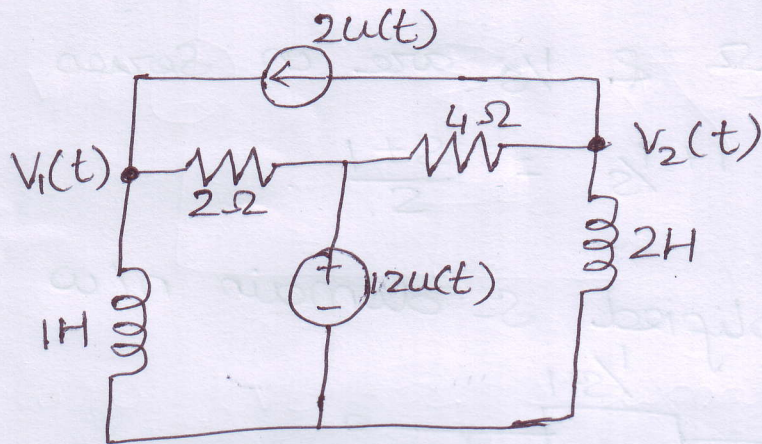 2u(t)
4Ω
V₁(t)
V₂(t)
2Ω
2H
+
12u(t)
-
1H